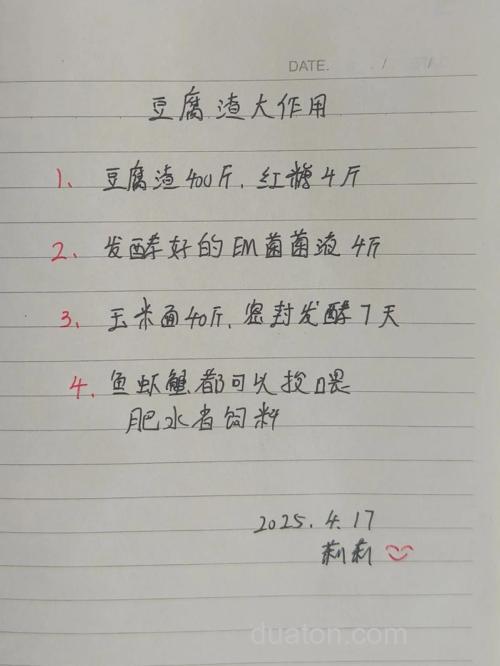 DATE. / /
豆腐渣大作用
1、豆腐渣400斤，红糖4斤
2、发酵好的EM菌菌液4斤
3、玉米面40斤，密封发酵7天
4、鱼虾蟹都可以投喂
肥水省饲料
2025.4.17
莉莉
duaton.com